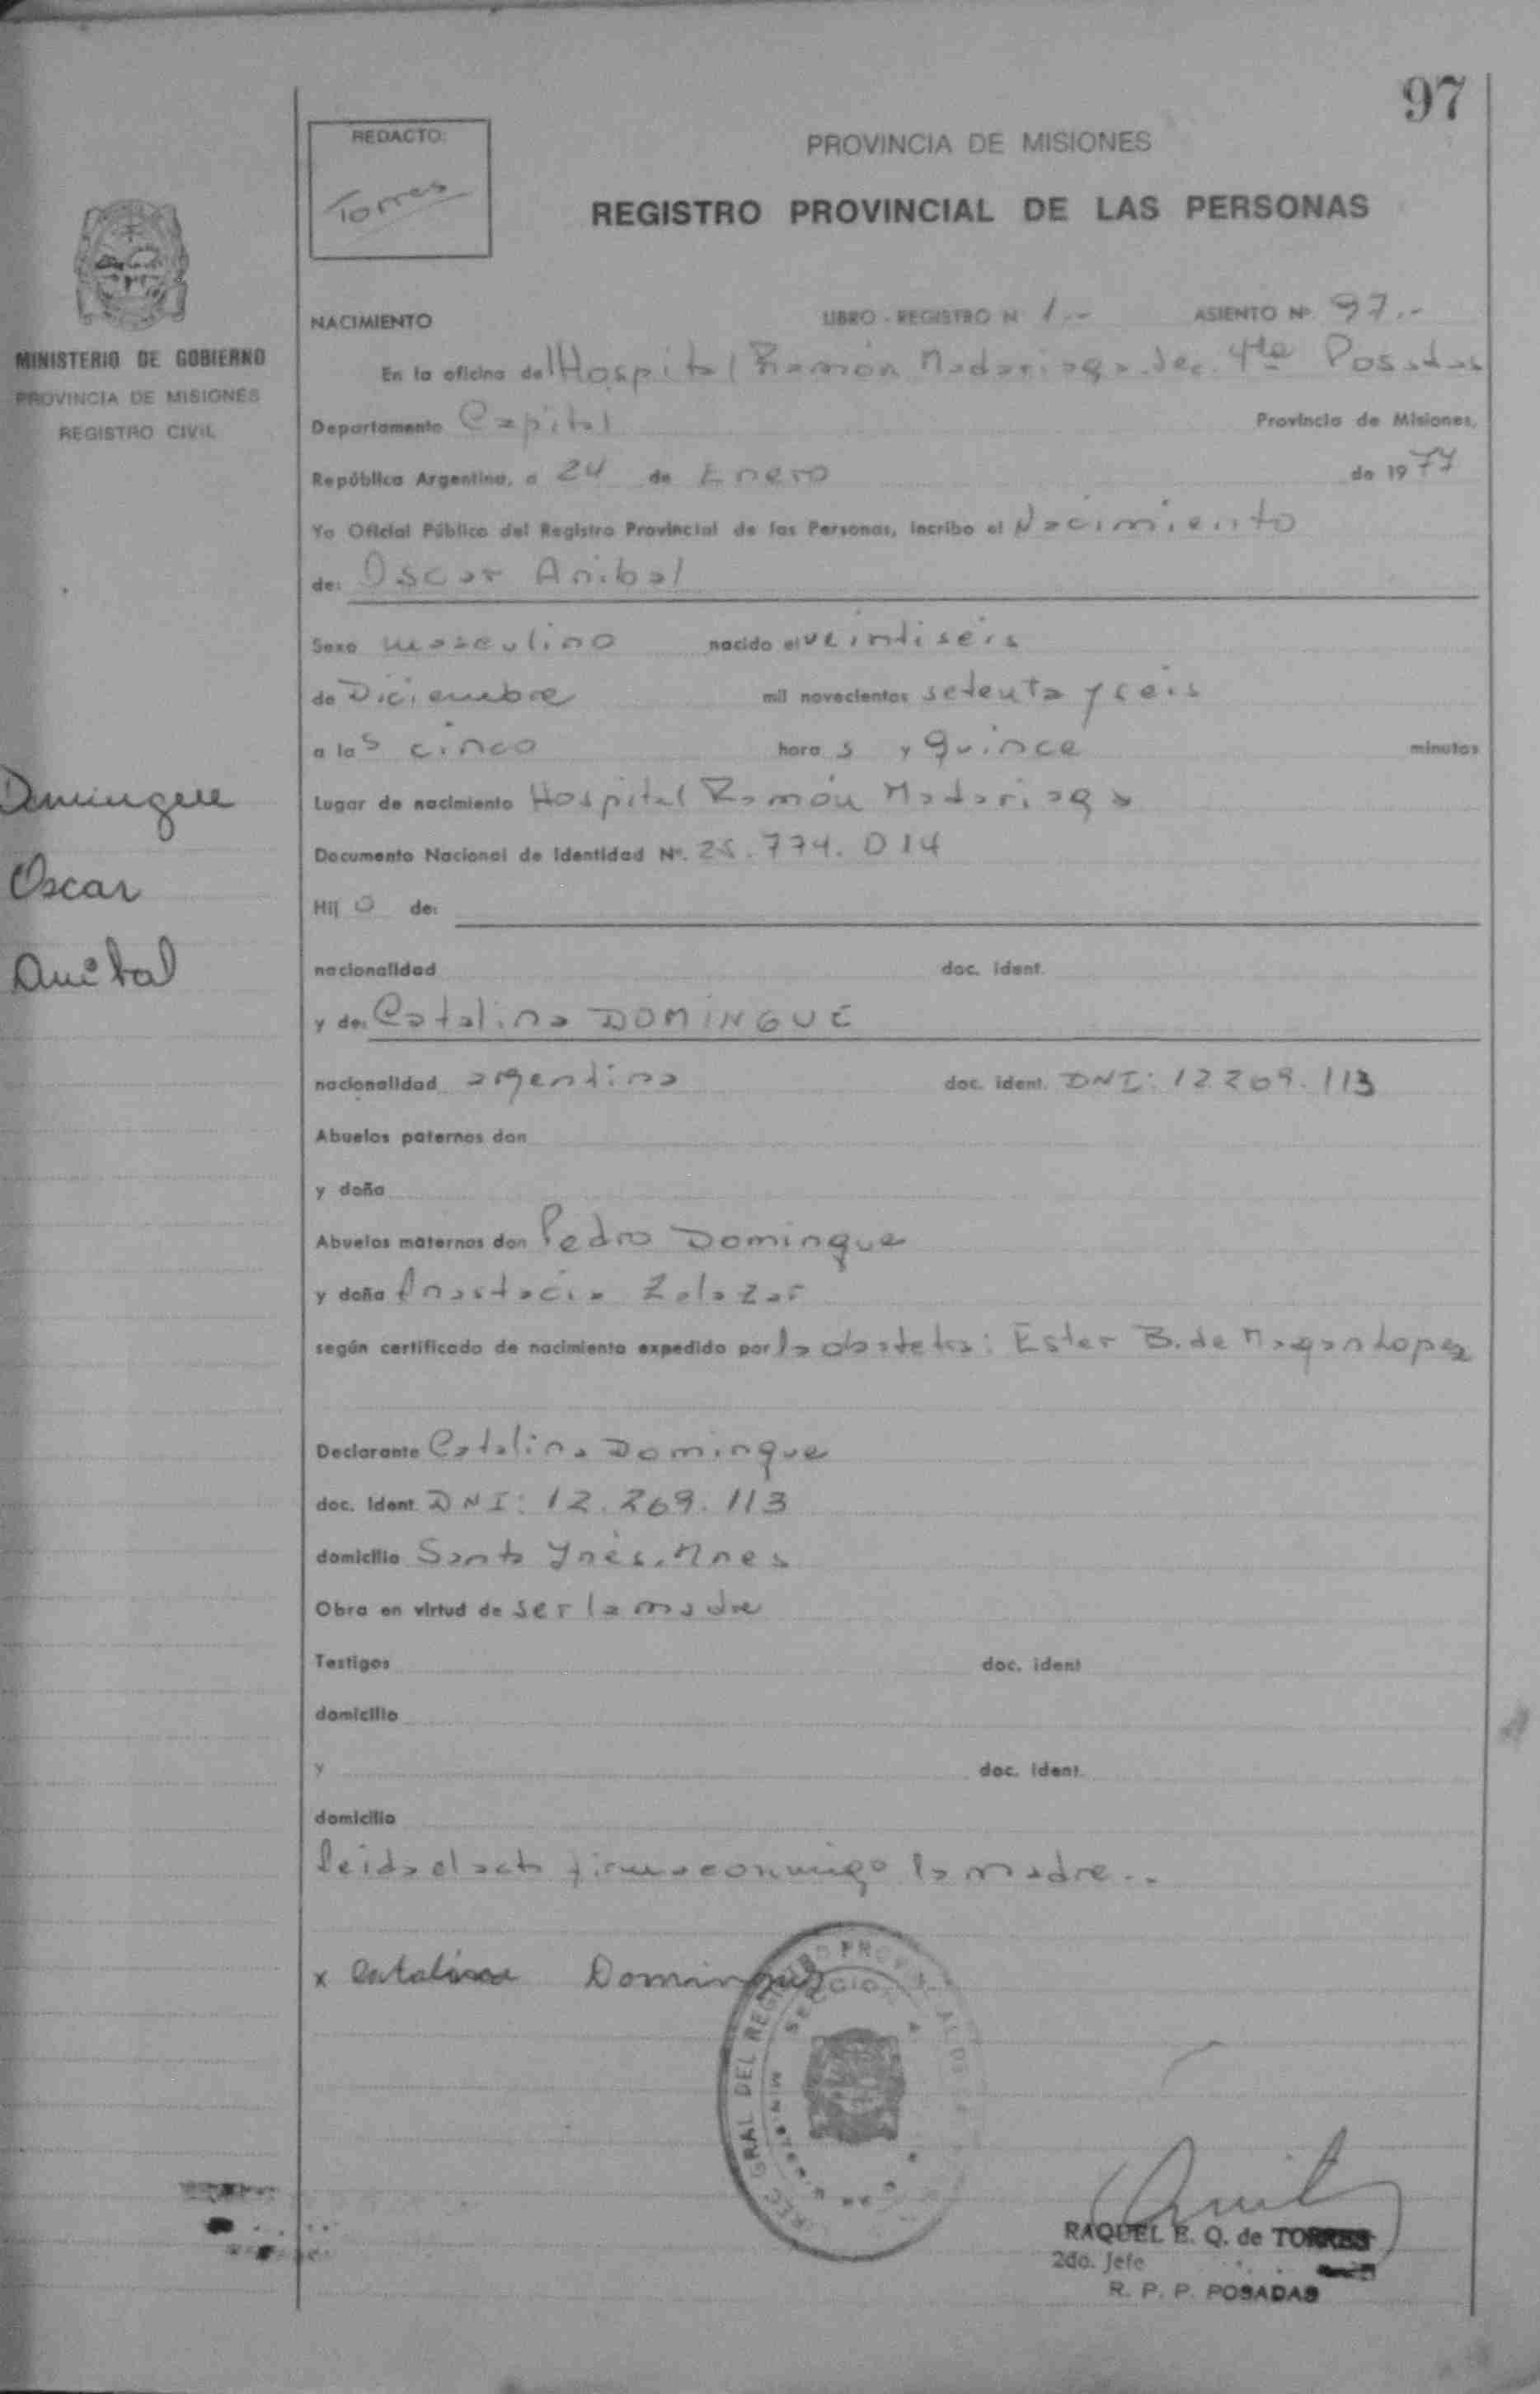 97
REDACTO:
Torres
PROVINCIA DE MISIONES
REGISTRO PROVINCIAL DE LAS PERSONAS
MINISTERIO DE GOBIERNO
PROVINCIA DE MISIONES
REGISTRO CIVIL
NACIMIENTO LIBRO - REGISTRO Nº 1.- ASIENTO Nº 97.-
En la oficina del Hospital Ramón Madariaga. Sec. 4ta Posadas
Departamento Capital Provincia de Misiones,
República Argentina, a 24 de Enero de 1977
Yo Oficial Público del Registro Provincial de las Personas, incribo el Nacimiento
de: Oscar Anibal
Sexo masculino nacido el veintiseis
de Diciembre mil novecientos setenta y seis
a las cinco horas y quince minutos
Domingue
Oscar
Anibal
Lugar de nacimiento Hospital Ramón Madariaga
Documento Nacional de Identidad Nº. 25.774.014
Hijo de:
nacionalidad doc. ident.
y de: Catalina DOMINGUE
nacionalidad argentina doc. ident. DNI: 12.269.113
Abuelos paternos don
y doña
Abuelos maternos don Pedro Domingue
y doña Anastacia Zalazar
según certificado de nacimiento expedido por la obstetra: Ester B. de Magan Lopez
Declarante Catalina Domingue
doc. ident. DNI: 12.269.113
domicilio Santa Ynés. Mnes
Obra en virtud de ser la madre
Testigos doc. ident
domicilio
y doc. ident.
domicilio
leida el acta firma conmigo la madre.-
x Catalina Domingue
GRAL DEL REGISTRO PROVINCIAL DE
SECCION
RAQUEL E. Q. de TORRES
2do. Jefe
R. P. P. POSADAS